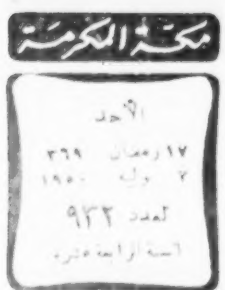 مكة المكرمة
الأحد
١٧ رمضان ٣٦٩
٢ يوليه ١٩٥٠
لعدد ٩٣٢
السنة الرابعة عشرة